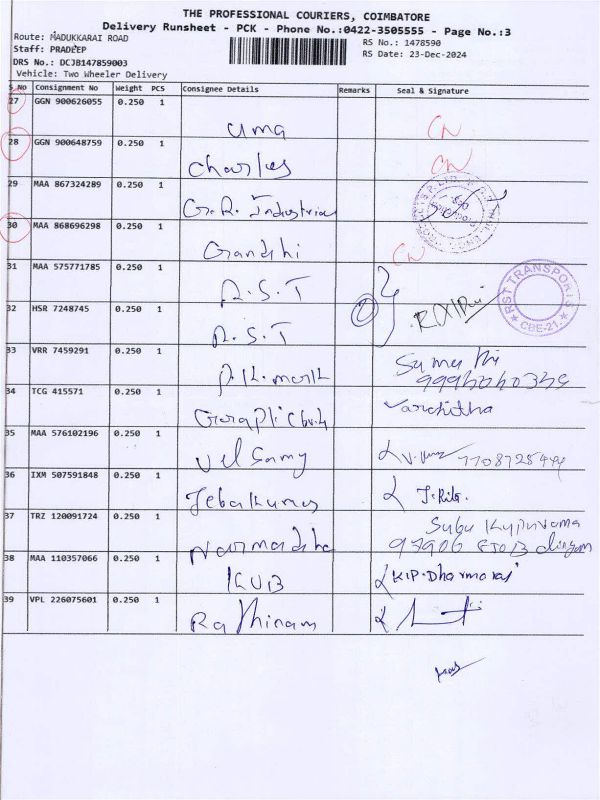 THE PROFESSIONAL COURIERS, COIMBATORE
Delivery Runsheet - PCK - Phone No.:0422-3505555 - Page No.:3
Route: MADUKKARAI ROAD
RS No.: 1478590
Staff: PRADEEP
RS Date: 23-Dec-2024
DRS No.: DCJB147859003
Vehicle: Two Wheeler Delivery
S.No Consignment No Weight PCS Consignee Details Remarks Seal & Signature
27 GGN 900626055 0.250 1
Uma CN
28 GGN 900648759 0.250 1
Charles CN
29 MAA 867324289 0.250 1
G.R. Industries
30 MAA 868696298 0.250 1
Gandhi CN
31 MAA 575771785 0.250 1
R.S.T
RST TRANSPORTS
CBE-21.
32 HSR 7248745 0.250 1
R.S.T
33 VRR 7459291 0.250 1
P.K. mark
34 TCG 415571 0.250 1
Varchitha
35 MAA 576102196 0.250 1
Vel Samy
36 IXM 507591848 0.250 1
Jebakumar J. Rita.
37 TRZ 120091724 0.250 1
Narmadha
38 MAA 110357066 0.250 1
KUB K.P. Dharmaraj
39 VPL 226075601 0.250 1
Rathinam